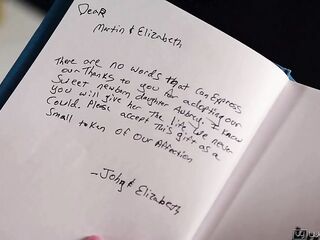 Dear
Martin & Elizabeth
There are no words that can express
our Thanks to you for adopting our
Sweet newborn daughter Aubrey. I know
you will give her The life we never
Could. Please accept This gift as a
Small token of Our Affection
- John & Elizabeth